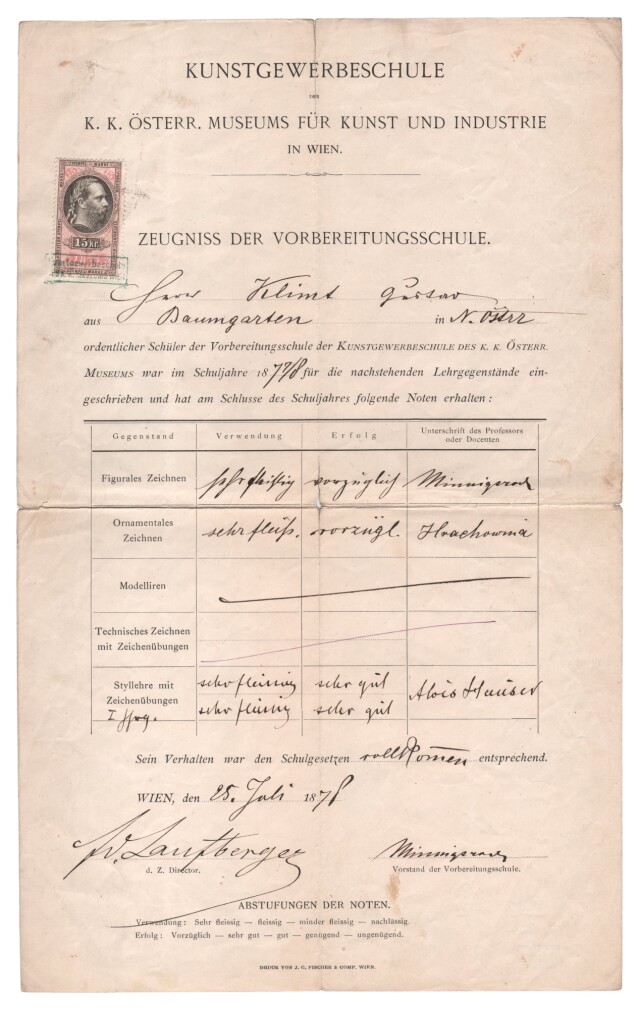 KUNSTGEWERBESCHULE
DES
K. K. ÖSTERR. MUSEUMS FÜR KUNST UND INDUSTRIE
IN WIEN.
15 Kr
ZEUGNISS DER VORBEREITUNGSSCHULE.
Herr Klimt Gustav
aus Baumgarten in N. Östrr
ordentlicher Schüler der Vorbereitungsschule der KUNSTGEWERBESCHULE DES K. K. ÖSTERR.
MUSEUMS war im Schuljahre 1877/8 für die nachstehenden Lehrgegenstände ein-
geschrieben und hat am Schlusse des Schuljahres folgende Noten erhalten:
Gegenstand Verwendung Erfolg Unterschrift des Professors oder Docenten
Figurales Zeichnen sehr fleißig vorzüglich Minnigerode
Ornamentales Zeichnen sehr fleiß. vorzügl. Hrachowina
Modelliren
Technisches Zeichnen mit Zeichenübungen
Styllehre mit sehr fleissig sehr gut Alois Hauser
Zeichenübungen sehr fleissig sehr gut
I. Jhrg.
Sein Verhalten war den Schulgesetzen vollkom̄en entsprechend.
WIEN, den 25. Juli 1878
Fd. Laufberger Minnigerode
d. Z. Director. Vorstand der Vorbereitungsschule.
ABSTUFUNGEN DER NOTEN.
Verwendung: Sehr fleissig — fleissig — minder fleissig — nachlässig.
Erfolg: Vorzüglich — sehr gut — gut — genügend — ungenügend.
DRUCK VON J. C. FISCHER & COMP. WIEN.